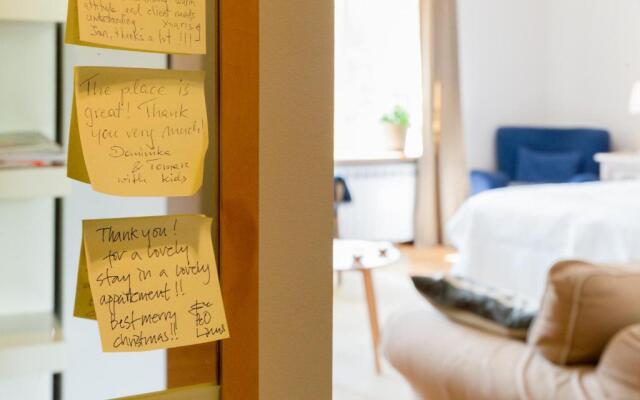 attitude and client needs
understanding
Jan, thanks a lot !!!
The place is
great! Thank
you very much!
Dominika
& Tomasz
with kids
Thank you!
for a lovely
stay in a lovely
appartement!!
best merry
christmas!!